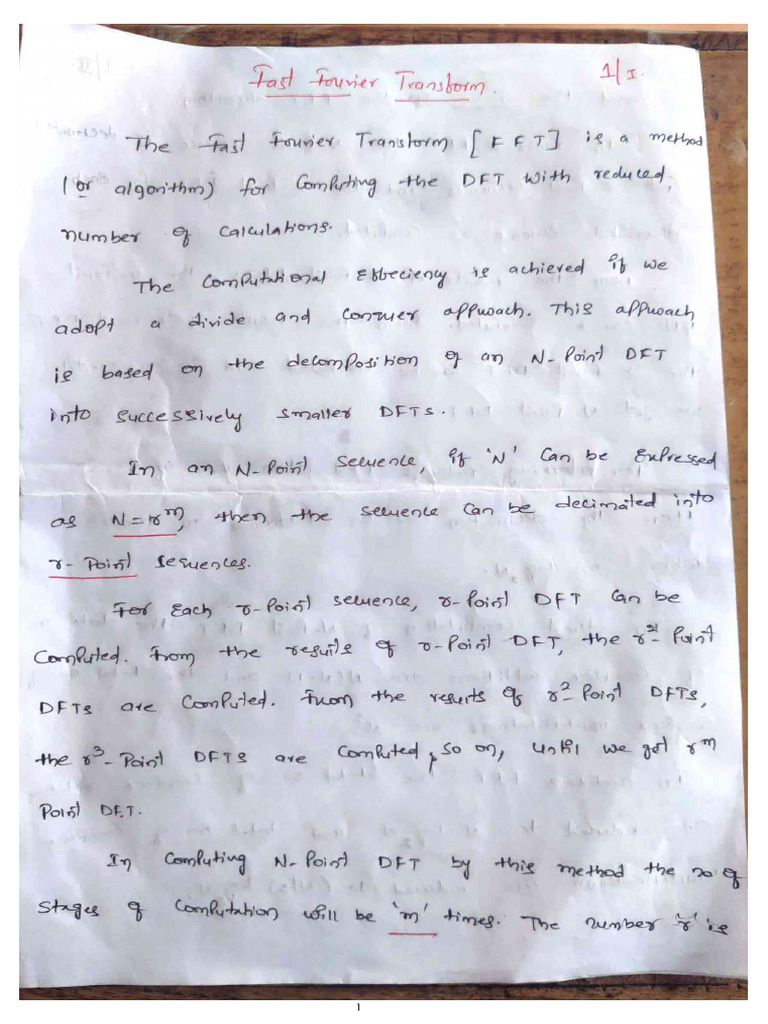 Fast Fourier Transform. 1/I.
The Fast Fourier Transform [FFT] is a method
(or algorithm) for Computing the DFT with reduced
number of calculations.
The Computational Effeciency is achieved if we
adopt a divide and conquer approach. This approach
is based on the decomposition of an N-Point DFT
into successively smaller DFTs.
In an N-Point sequence, if 'N' can be Expressed
as N=r^m, then the sequence can be decimated into
r-Point sequences.
For Each r-Point sequence, r-Point DFT can be
Computed. From the results of r-Point DFT, the r^2-Point
DFTs are Computed. From the results of r^2-Point DFTs,
the r^3-Point DFTs are Computed, so on, until we get r^m
Point DFT.
In Computing N-Point DFT by this method the no of
stages of Computation will be 'm' times. The number 'r' is
1